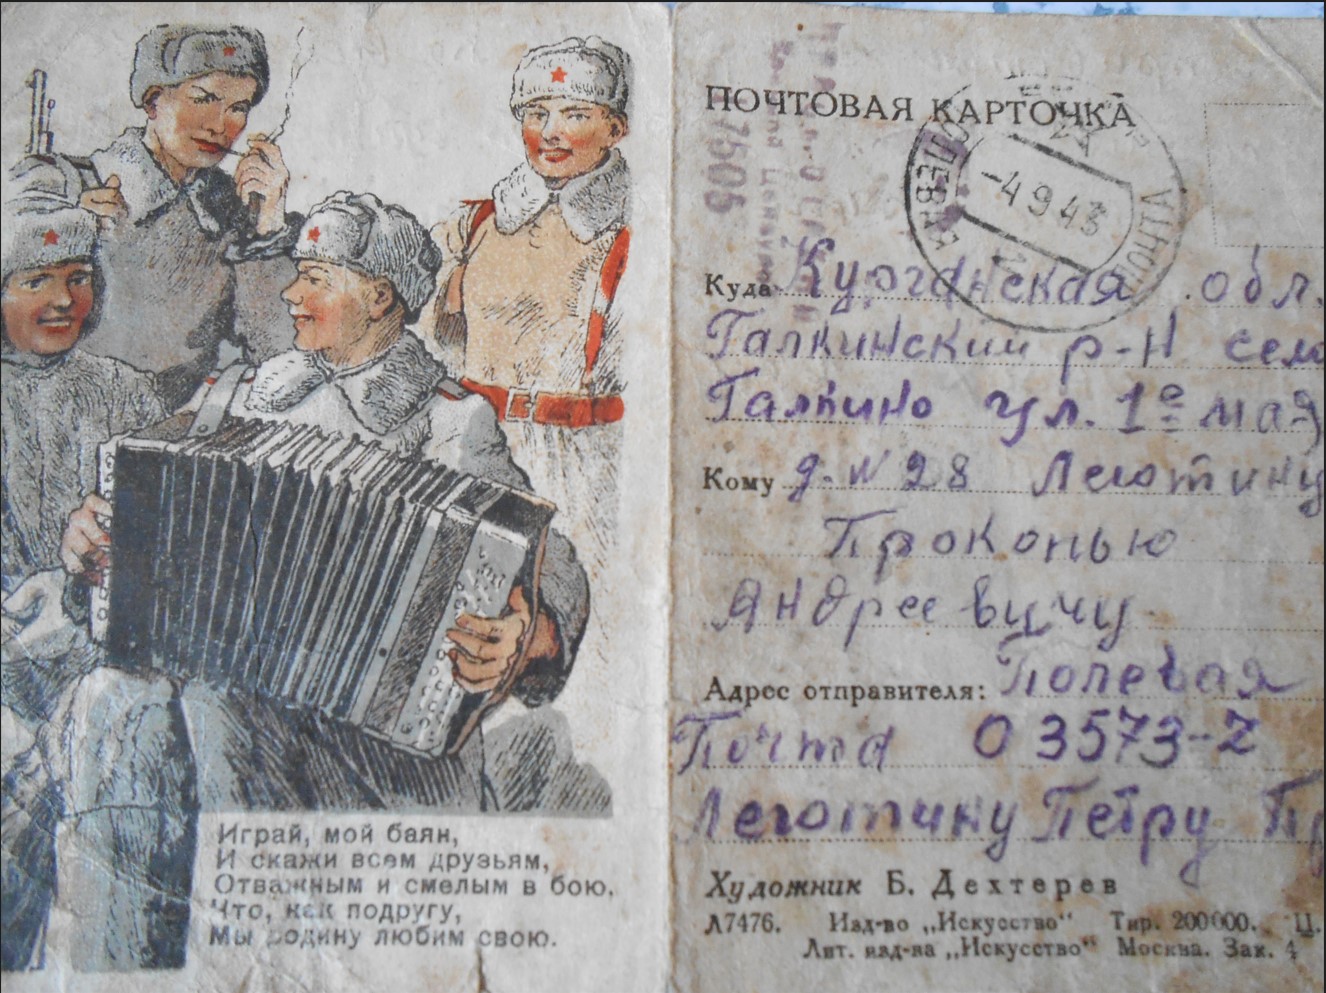 Играй, мой баян,
И скажи всем друзьям,
Отважным и смелым в бою,
Что, как подругу,
Мы родину любим свою.
ПОЧТОВАЯ КАРТОЧКА
7505
-4 9 43
ПОЧТА
ПОЛЕВАЯ
Куда Курганская обл.
Галкинский р-н село
Галкино ул. 1е мая
Кому д. N 28 Леготину
Проконью
Андреевичу
Адрес отправителя: Полевая
Почта 03573-Z
Леготину Петру Пр
Художник Б. Дехтерев
Л7476. Изд-во „Искусство“ Тир. 200000. Ц.
Лит. изд-ва „Искусство“ Москва. Зак. 4